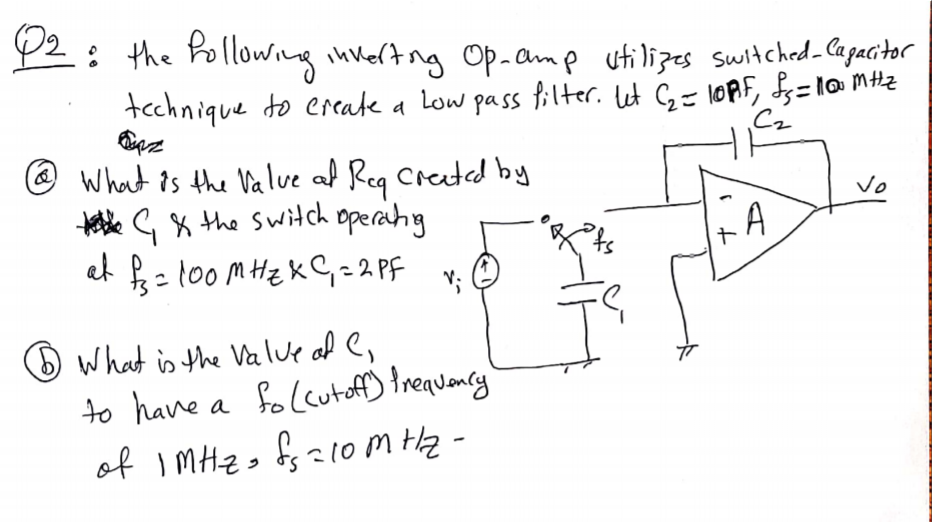 Q2: the following inverting Op-amp utilizes switched-Capacitor
technique to create a Low pass filter. let C2 = 10PF, fs = 100 MHz
(a) What is the Value of Req created by
C1 & the switch operating
at fs = 100 MHz & C1 = 2PF
(b) What is the Value of C1
to have a fo (cutoff) frequency
of 1 MHz, fs = 10 MHz -
C2
Vo
-
+
A
fs
Vi
+
-
C1